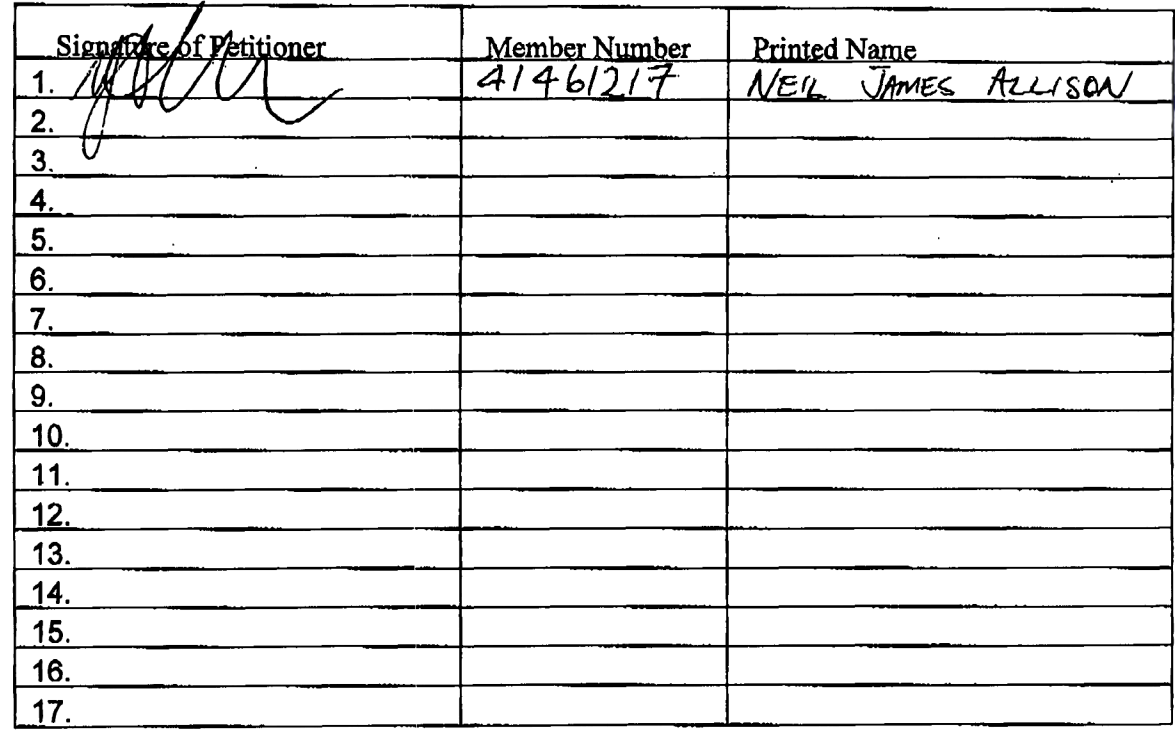 Signature of Petitioner Member Number Printed Name
1. 41461217 NEIL JAMES ALLISON
2.
3.
4.
5.
6.
7.
8.
9.
10.
11.
12.
13.
14.
15.
16.
17.